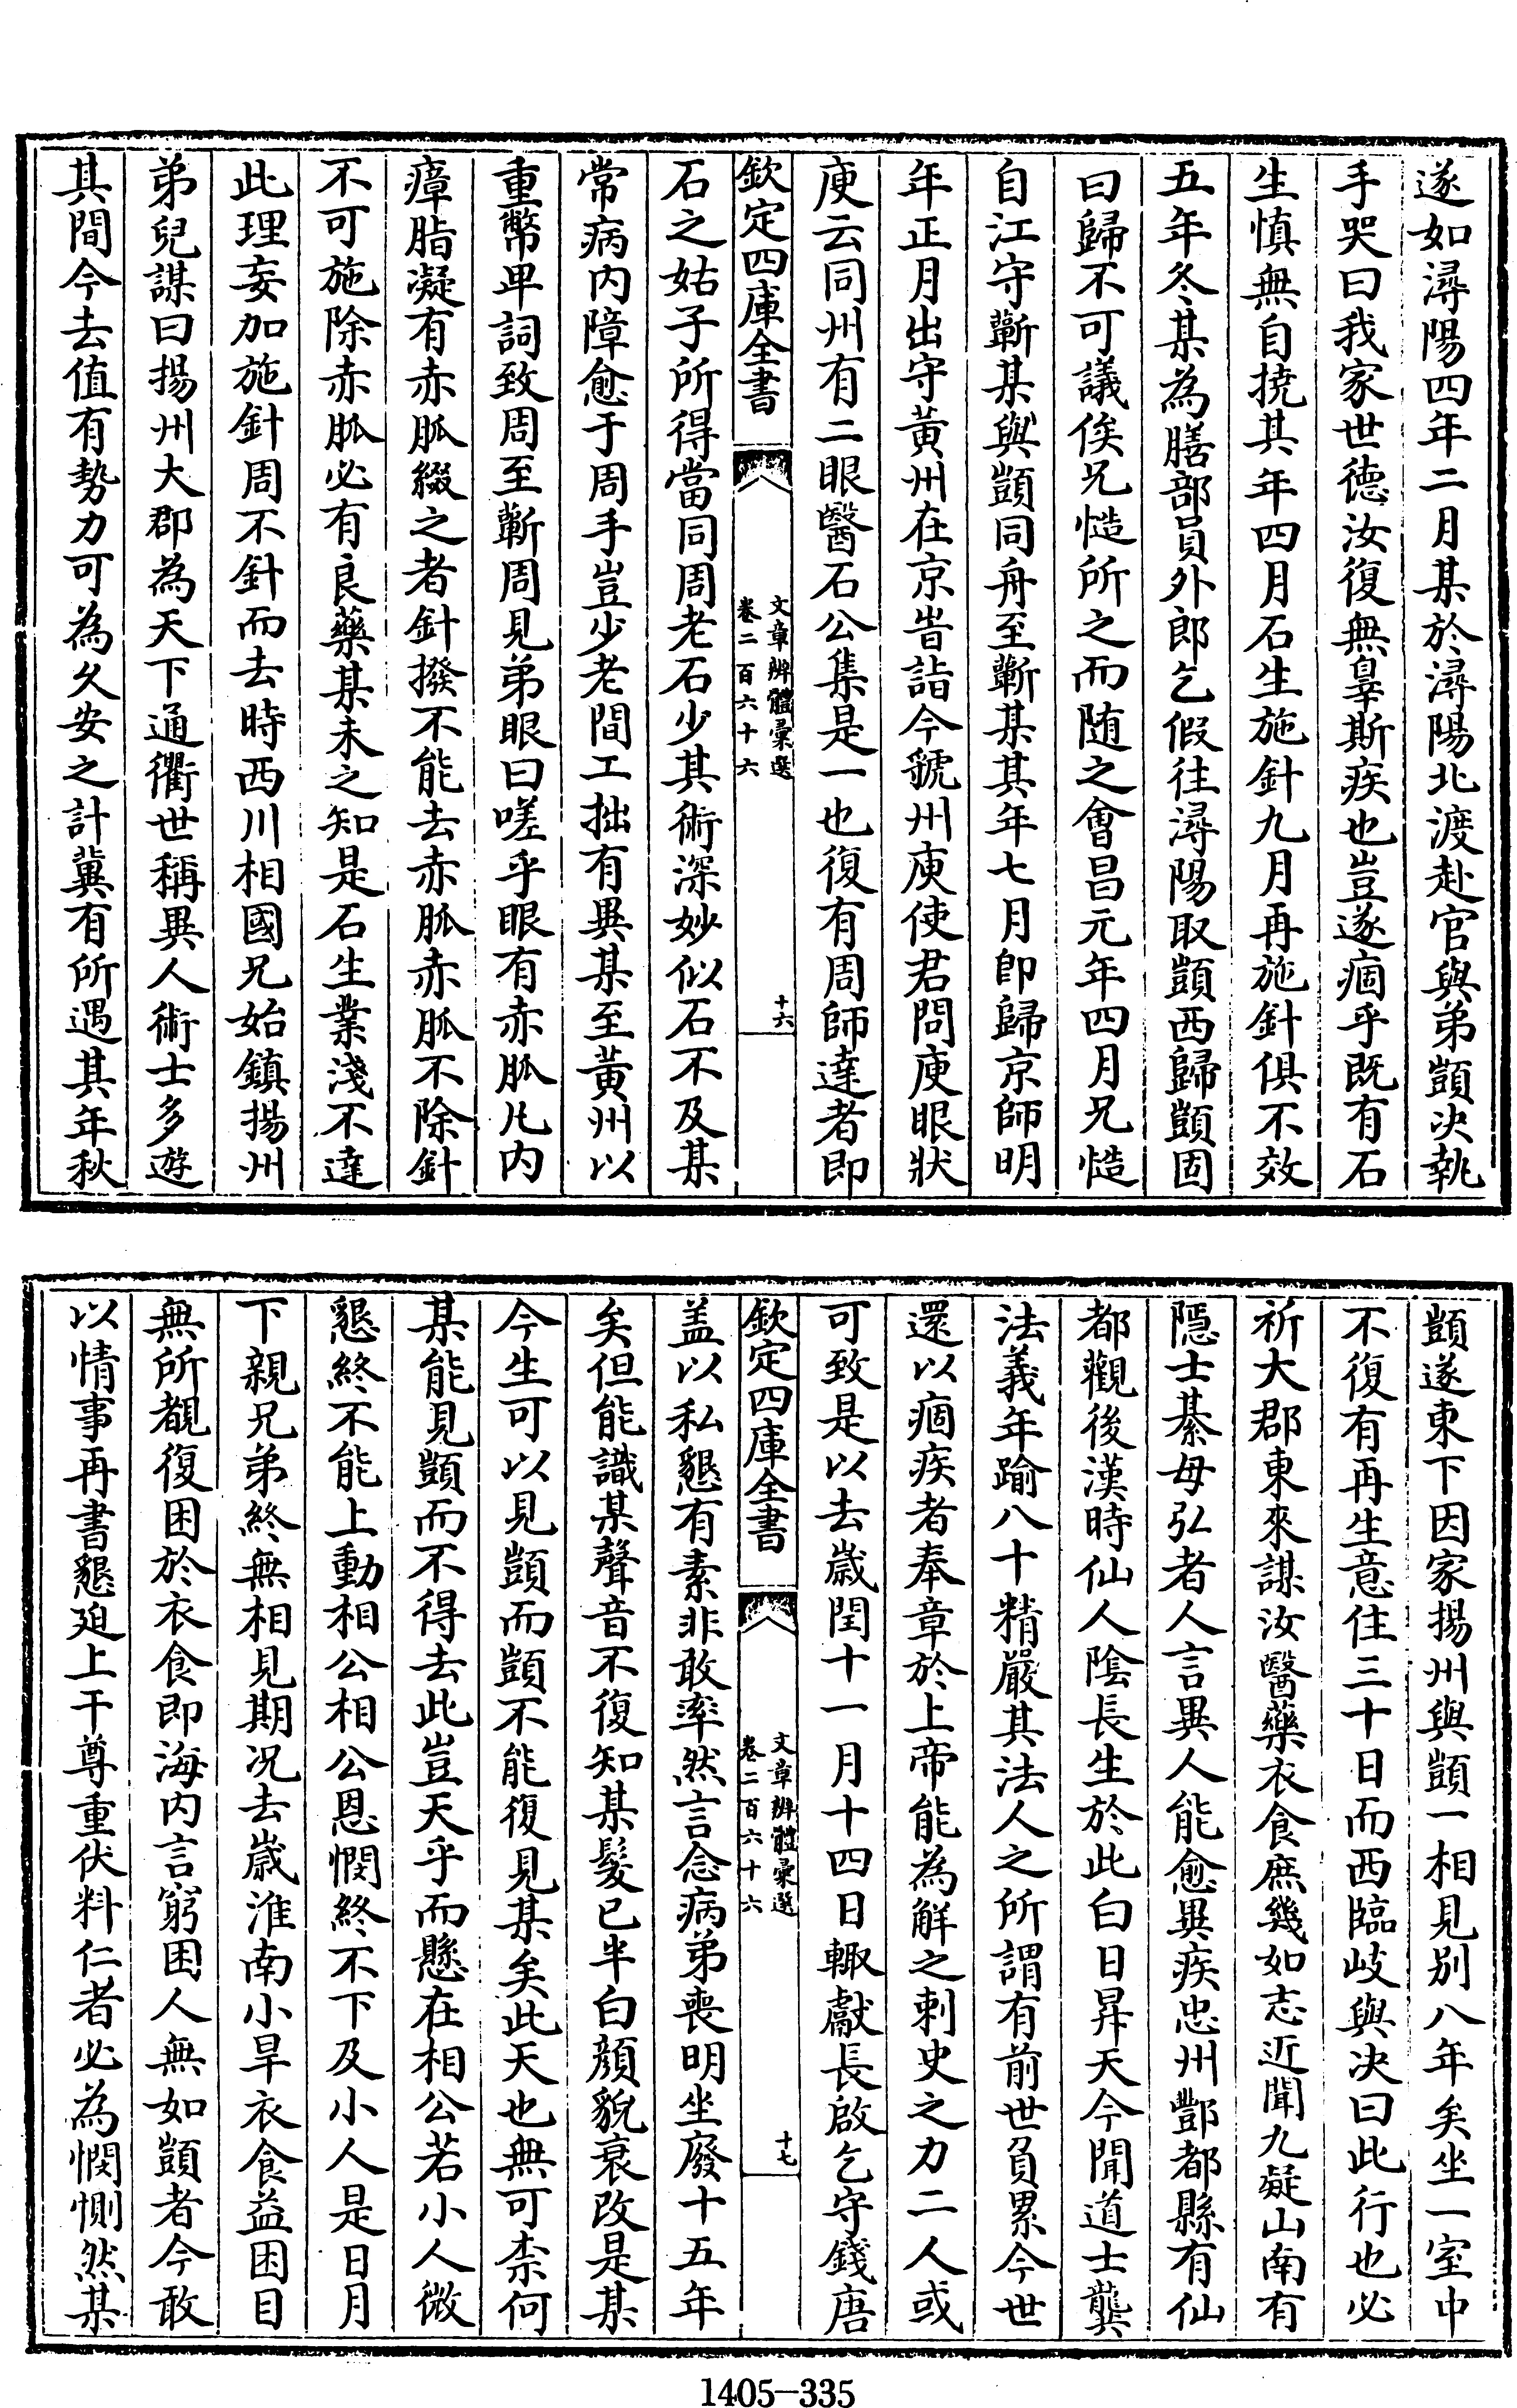 遂如潯陽四年二月某於潯陽北渡赴官與弟顗决執
手哭曰我家世德汝復無辠斯疾也豈遂痼乎既有石
生慎無自撓其年四月石生施針九月再施針俱不效
五年冬某為膳部員外郎乞假往潯陽取顗西歸顗固
曰歸不可議俟兄慥所之而随之會昌元年四月兄慥
自江守蘄某與顗同舟至蘄某其年七月卽歸京師明
年正月出守黄州在京峕詣今虢州庾使君問庾眼狀
庾云同州有二眼醫石公集是一也復有周師達者即
欽定四庫全書
文章辨體彙選
卷二百六十六
十六
石之姑子所得當同周老石少其術深妙似石不及某
常病内障愈于周手豈少老間工拙有異某至黄州以
重幣卑詞致周至蘄周見弟眼曰嗟乎眼有赤脈凡内
瘴脂凝有赤脈綴之者針撥不能去赤脈赤脈不除針
不可施除赤脈必有良藥某未之知是石生業淺不達
此理妄加施針周不針而去時西川相國兄始鎮揚州
弟兒謀曰揚州大郡為天下通衢世稱異人術士多遊
其間今去值有勢力可為久安之計冀有所遇其年秋
顗遂東下因家揚州與顗一相見别八年矣坐一室中
不復有再生意住三十日而西臨岐與决曰此行也必
祈大郡東來謀汝醫藥衣食庶幾如志近聞九疑山南有
隱士綦毋弘者人言異人能愈異疾忠州酆都縣有仙
都觀後漢時仙人陰長生於此白日昇天今聞道士龔
法義年踰八十精嚴其法人之所謂有前世負累今世
還以痼疾者奉章於上帝能為解之刺史之力二人或
可致是以去歲閏十一月十四日輙獻長啟乞守錢唐
欽定四庫全書
文章辨體彙選
卷二百六十六
十七
盖以私懇有素非敢率然言念病弟喪明坐廢十五年
矣但能識某聲音不復知某髮已半白顔貌衰改是某
今生可以見顗而顗不能復見某矣此天也無可柰何
某能見顗而不得去此豈天乎而懸在相公若小人微
懇終不能上動相公相公恩憫終不下及小人是日月
下親兄弟終無相見期况去歲淮南小旱衣食益困目
無所覩復困於衣食即海内言窮困人無如顗者今敢
以情事再書懇廹上干尊重伏料仁者必為憫惻然某
1405-335